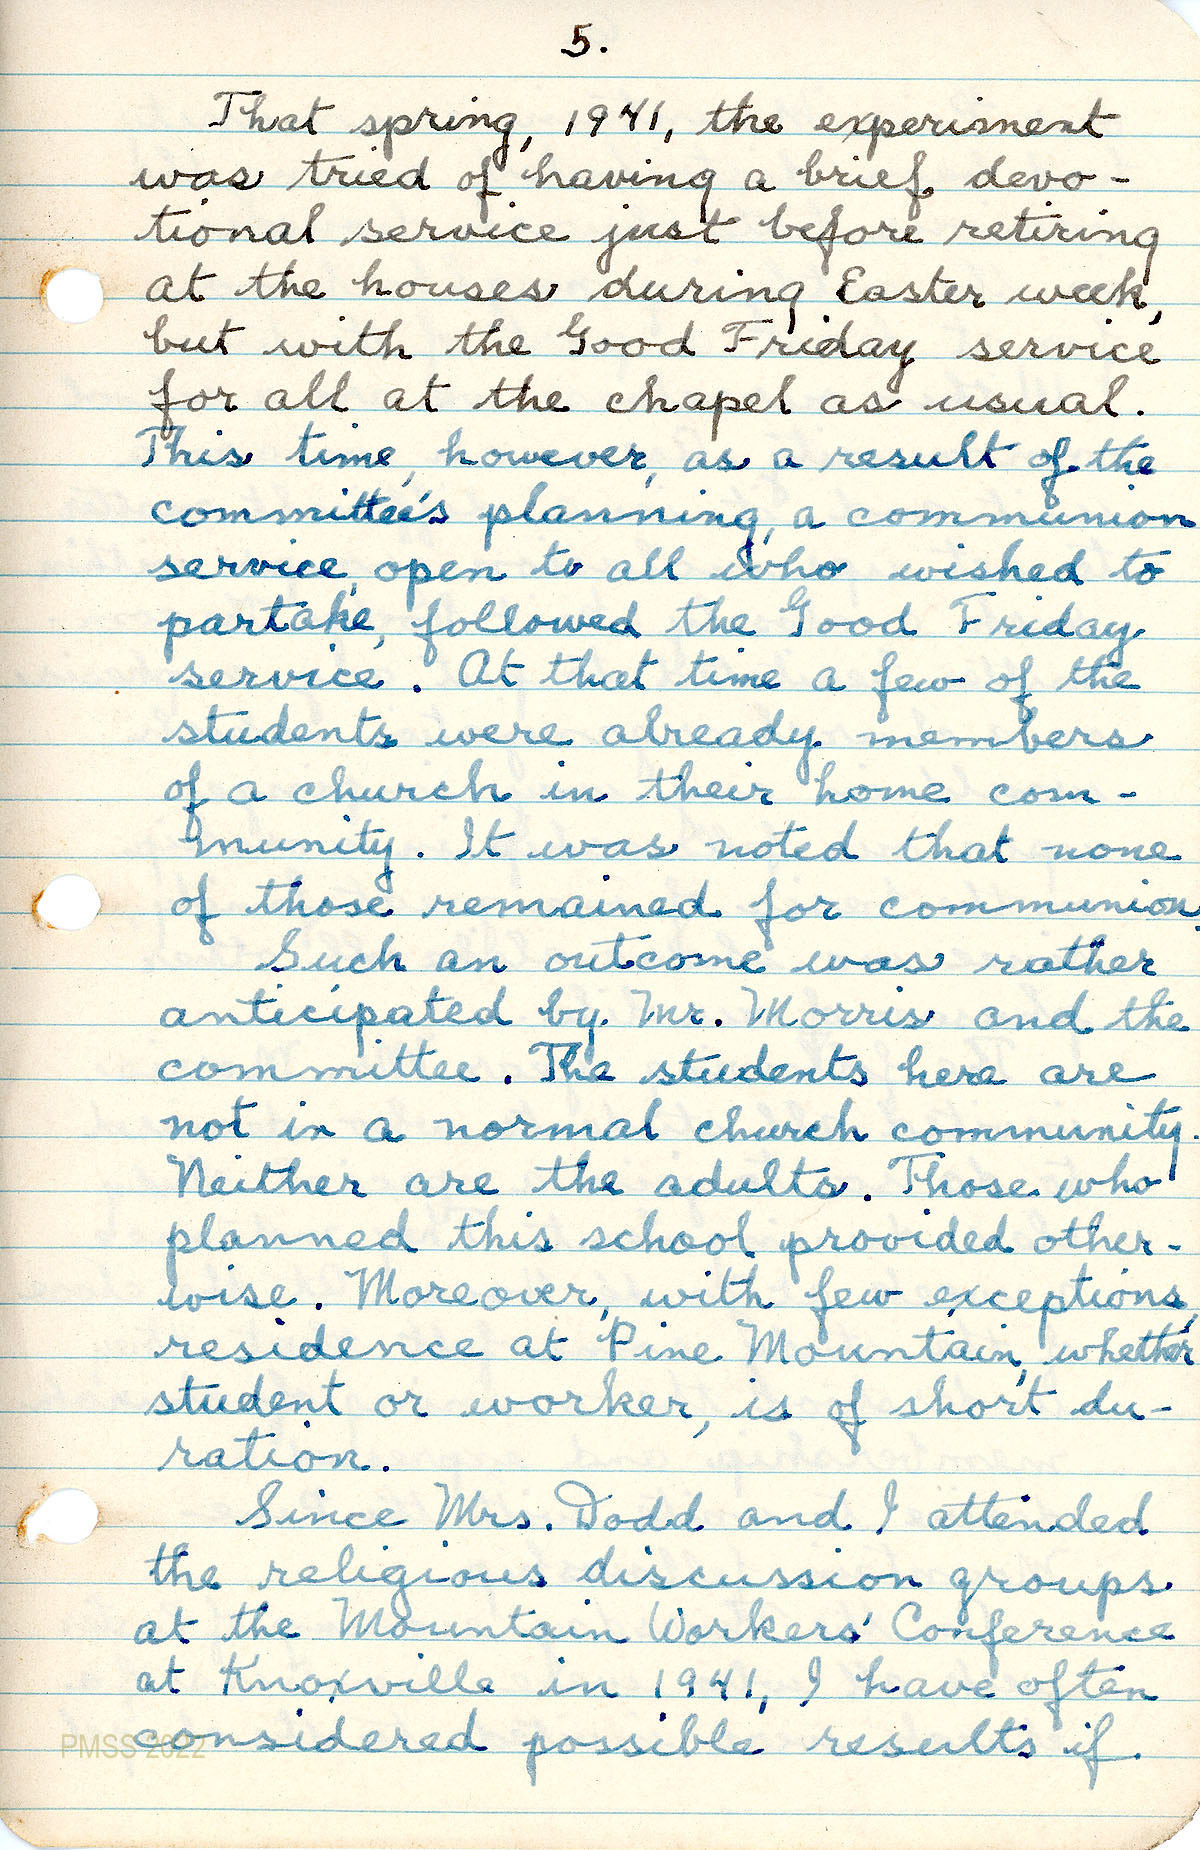 5.
That spring, 1941, the experiment
was tried of having a brief devo-
tional service just before retiring
at the houses during Easter week,
but with the Good Friday service
for all at the chapel as usual.
This time, however, as a result of the
committee's planning, a communion
service, open to all who wished to
partake, followed the Good Friday
service. At that time a few of the
students were already members
of a church in their home com-
munity. It was noted that none
of those remained for communion.
Such an outcome was rather
anticipated by Mr. Morris and the
committee. The students here are
not in a normal church community.
Neither are the adults. Those who
planned this school provided other-
wise. Moreover, with few exceptions,
residence at Pine Mountain, whether
student or worker, is of short du-
ration.
Since Mrs. Dodd and I attended
the religious discussion groups
at the Mountain Workers' Conference
at Knoxville in 1941, I have often
considered possible results if
PMSS 2022